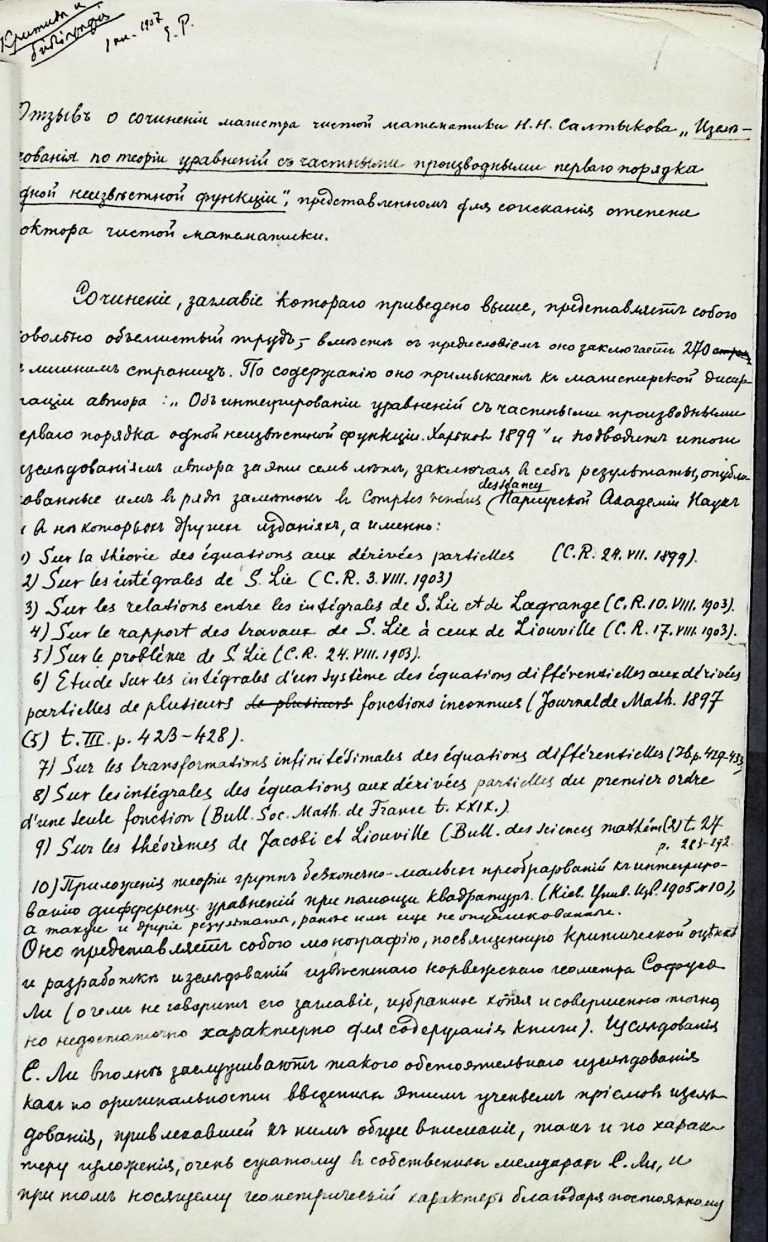 Критика и
библіографія
1 1907
Отзывъ о сочиненіи магистра чистой математики Н.Н. Салтыкова „Изслѣ-
дованія по теоріи уравненій съ частными производными перваго порядка
одной неизвѣстной функціи", представленномъ для соисканія степени
доктора чистой математики.
Сочиненіе, заглавіе котораго приведено выше, представляетъ собою
довольно объемистый трудъ, – вмѣстѣ съ предисловіемъ оно заключаетъ 270
с лишнимъ страницъ. По содержанію оно примыкаетъ къ магистерской диссер-
таціи автора: „Объ интегрированіи уравненій съ частными производными
перваго порядка одной неизвѣстной функціи. Харьковъ 1899" и подводитъ итоги
изслѣдованіямъ автора за эти семь лѣтъ, заключая въ себѣ результаты, опубли-
кованные имъ въ рядѣ замѣтокъ въ Comptes rendus des séances Парижской Академіи Наукъ
и въ нѣкоторыхъ другихъ изданіяхъ, а именно:
1) Sur la théorie des équations aux dérivées partielles (C.R. 24. VII. 1899).
2) Sur les intégrales de S. Lie (C.R. 3. VIII. 1903)
3) Sur les relations entre les intégrales de S. Lie et de Lagrange (C.R. 10. VIII. 1903).
4) Sur le rapport des travaux de S. Lie à ceux de Liouville (C.R. 17. VIII. 1903).
5) Sur le problème de S. Lie (C.R. 24. VIII. 1903).
6) Etude sur les intégrales d'un système des équations différentielles aux dérivées
partielles de plusieurs de plusieurs fonctions inconnues (Journal de Math. 1897
(5) t. III. p. 423–428).
7) Sur les transformations infinitésimales des équations différentielles (Ib. p. 429-433)
8) Sur les intégrales des équations aux dérivées partielles du premier ordre
d'une seule fonction (Bull. Soc. Math. de France t. XXIX.)
9) Sur les théorèmes de Jacobi et Liouville (Bull. des sciences mathém (2) t. 27
p. 283-192.
10) Приложенія теоріи группъ безконечно-малыхъ преобразованій къ интегриро-
ванію дифференц. уравненій при помощи квадратуръ. (Кіев. Унив. Изв. 1905 № 10),
а также и другіе результаты, ранѣе имъ еще не опубликованные.
Оно представляетъ собою монографію, посвященную критической оцѣнкѣ
и разработкѣ изслѣдованій извѣстнаго норвежскаго геометра Софуса
Ли (о чемъ не говоритъ его заглавіе, избранное хотя и совершенно точно,
но недостаточно характерно для содержанія книги). Изслѣдованія
С. Ли вполнѣ заслуживаютъ такого обстоятельнаго изслѣдованія
какъ по оригинальности введенныхъ этимъ ученымъ пріемовъ изслѣ-
дованія, привлекавшей къ нимъ общее вниманіе, такъ и по харак-
теру изложенія, очень сжатому въ собственныхъ мемуарахъ С. Ли, и
при томъ носящему геометрическій характеръ благодаря постоянному